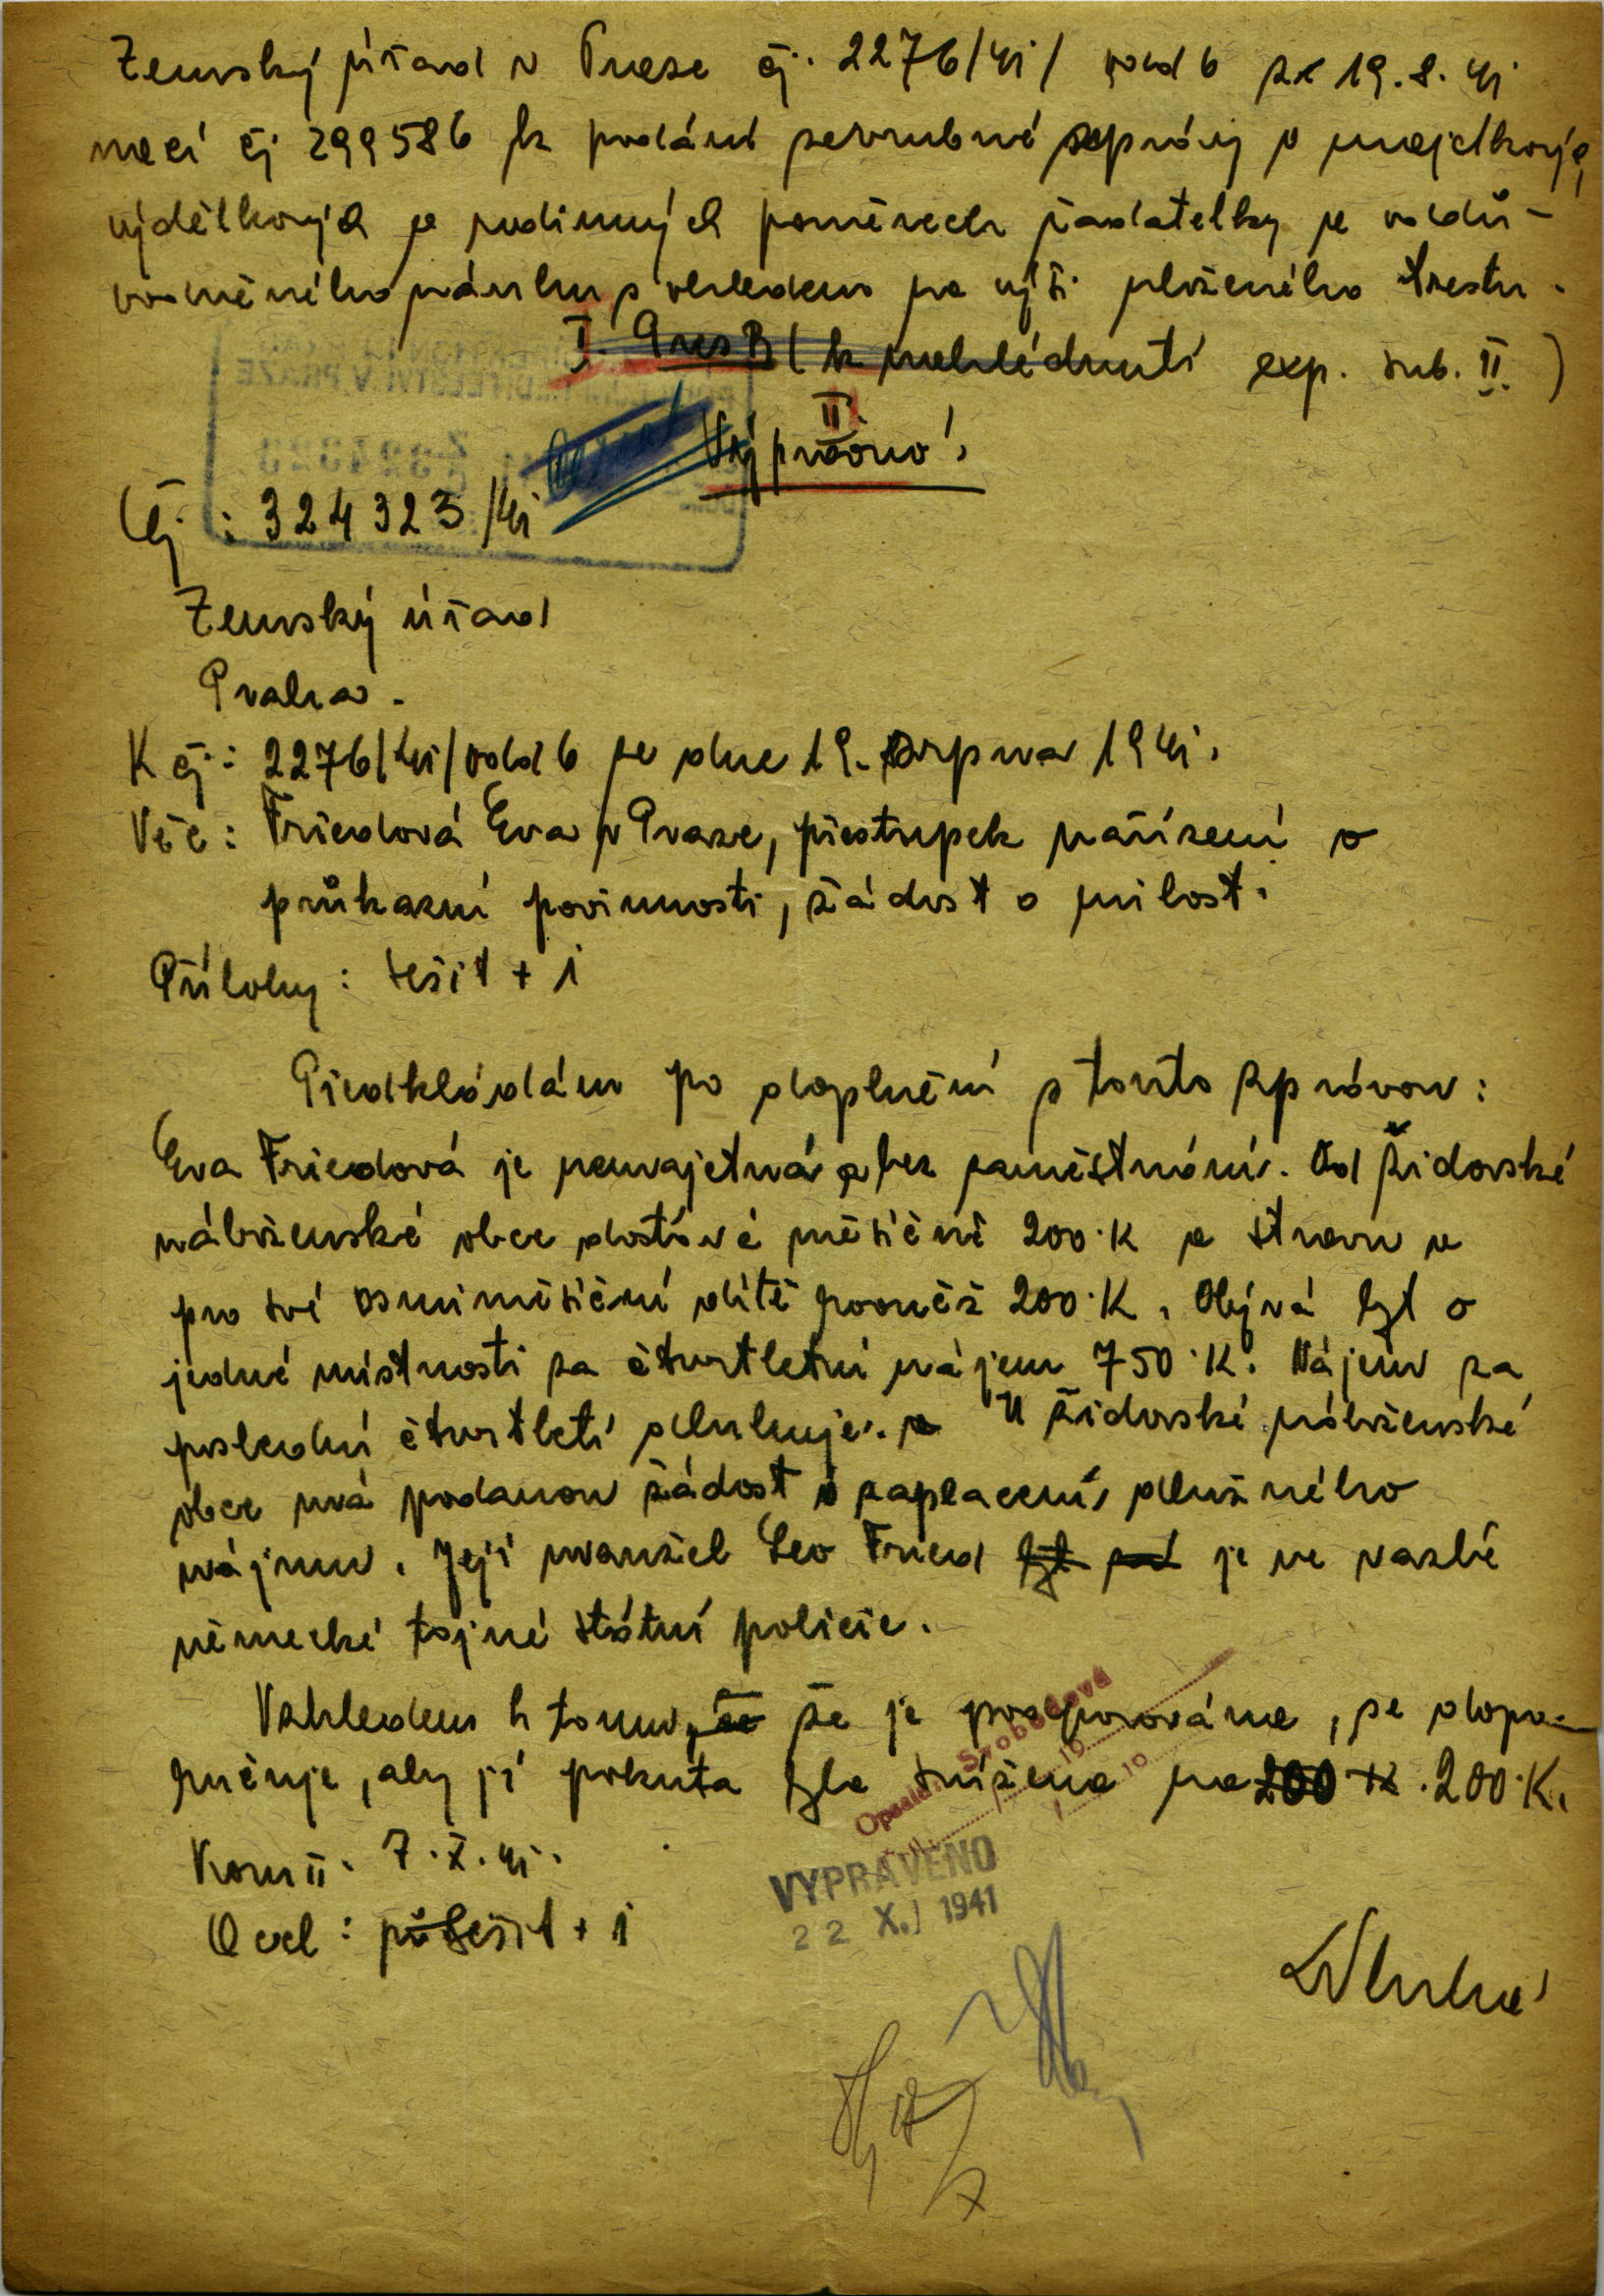 Zemský úřad v Praze čj. 2276/41/ odd 6 ze 19.8.41
vrací čj 299586 k podání podrobné zprávy o majetkových,
výdělkových a rodinných poměrech žadatelky a oddů-
vodněného návrhu s ohledem na výši uloženého trestu.
I. Pres B ( k nahlédnutí exp. sub. II. )
II.
Výpravna:
Čj: 324323/41
Zemský úřad
Praha.
K čj: 2276/41/odd 6 ze dne 19. srpna 1941.
Věc: Friedová Eva v Praze, přestupek nařízení o
průkazní povinnosti, žádost o milost.
Přílohy: sešit + 1
Předkládám po doplnění s touto zprávou:
Eva Friedová je nemajetná a bez zaměstnání. Od židovské
náboženské obce dostává měsíčně 200·K a stravu a
pro své osmiměsíční dítě rovněž 200·K. Obývá byt o
jedné místnosti za čtvrtletní nájem 750·K. Nájem za
poslední čtvrtletí dluhuje. U židovské náboženské
obce má podanou žádost o zaplacení dlužného
nájmu. Její manžel Leo Fried je ve vazbě
německé tajné státní policie.
Vzhledem k tomu, že je podporována, se dopo-
ručuje, aby jí pokuta byla snížena na 200 K. 200·K.
Kom II. 7.X.41.
Odd: sešit + 1
Opsala: Svobodová
VYPRAVENO
22 X. 1941